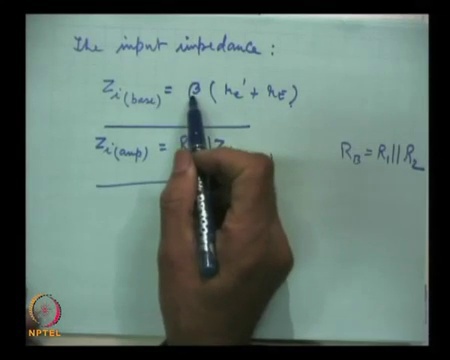 The input impedance :
Zi(base) = β ( re' + rE )
Zi(amp) = R || Z
RB = R1 || R2
NPTEL